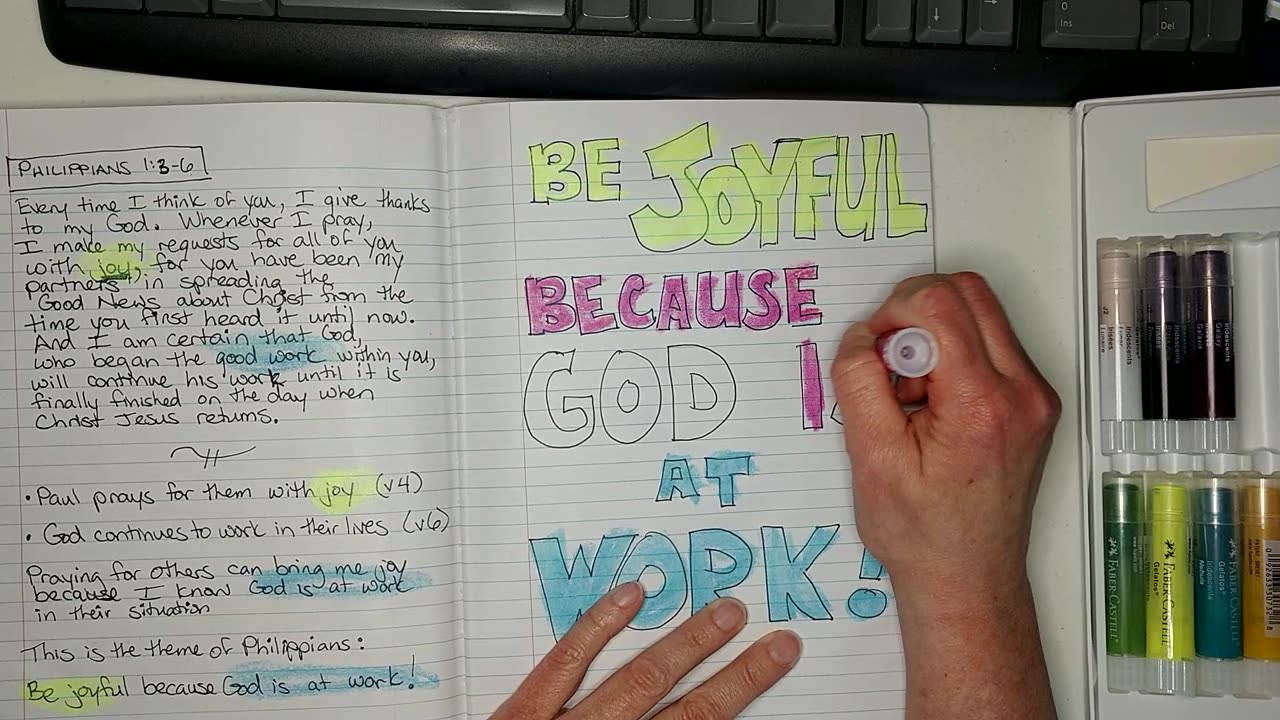 PHILIPPIANS 1:3-6
Every time I think of you, I give thanks
to my God. Whenever I pray,
I make my requests for all of you
with joy, for you have been my
partners in spreading the
Good News about Christ from the
time you first heard it until now.
And I am certain that God,
who began the good work within you,
will continue his work until it is
finally finished on the day when
Christ Jesus returns.
• Paul prays for them with joy (v4)
• God continues to work in their lives (v6)
Praying for others can bring me joy
because I know God is at work
in their situation
This is the theme of Philippians:
Be joyful because God is at work!
BE JOYFUL
BECAUSE
GOD IS
AT
WORK!
0
Ins
Del
Iridescents
Iridescents
Iridescents
FABER-CASTELL
FABER-CASTELL
Gelatos
FABER-CASTELL
Gelatos
Iridescents